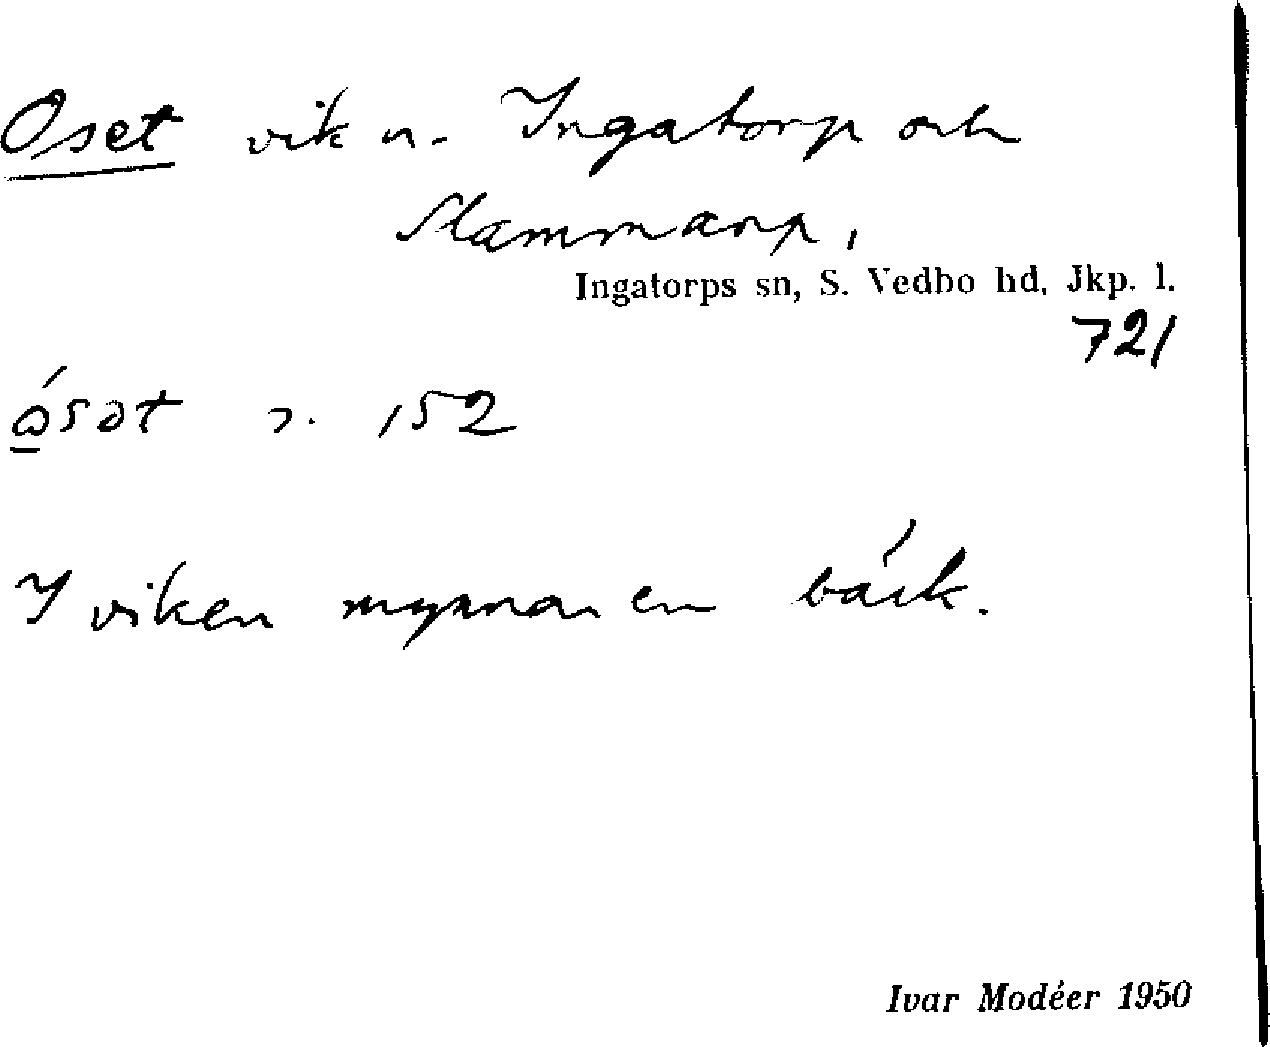 Oset vik n. Ingatorp och
Slammarp,
Ingatorps sn, S. Vedbo hd, Jkp. l.
721
ósət s. 152
I viken mynnar en bäck.
Ivar Modéer 1950